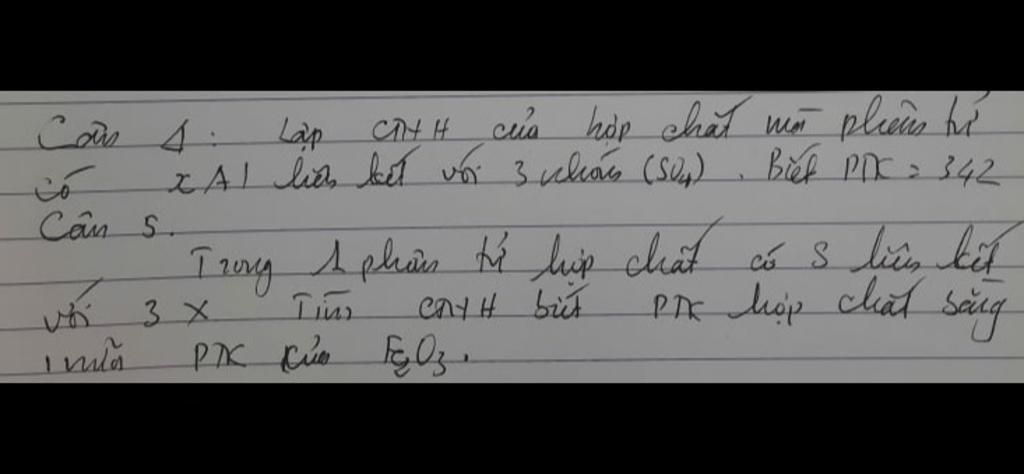 Câu 1: Lập CTHH của hợp chất mà phân tử
có xAl liên kết với 3 nhóm (SO4). Biết PTK = 342
Câu 5.
Trong 1 phân tử hợp chất có S liên kết
với 3 X Tìm CTHH biết PTK hợp chất bằng
1 nửa PTK của Fe2O3.